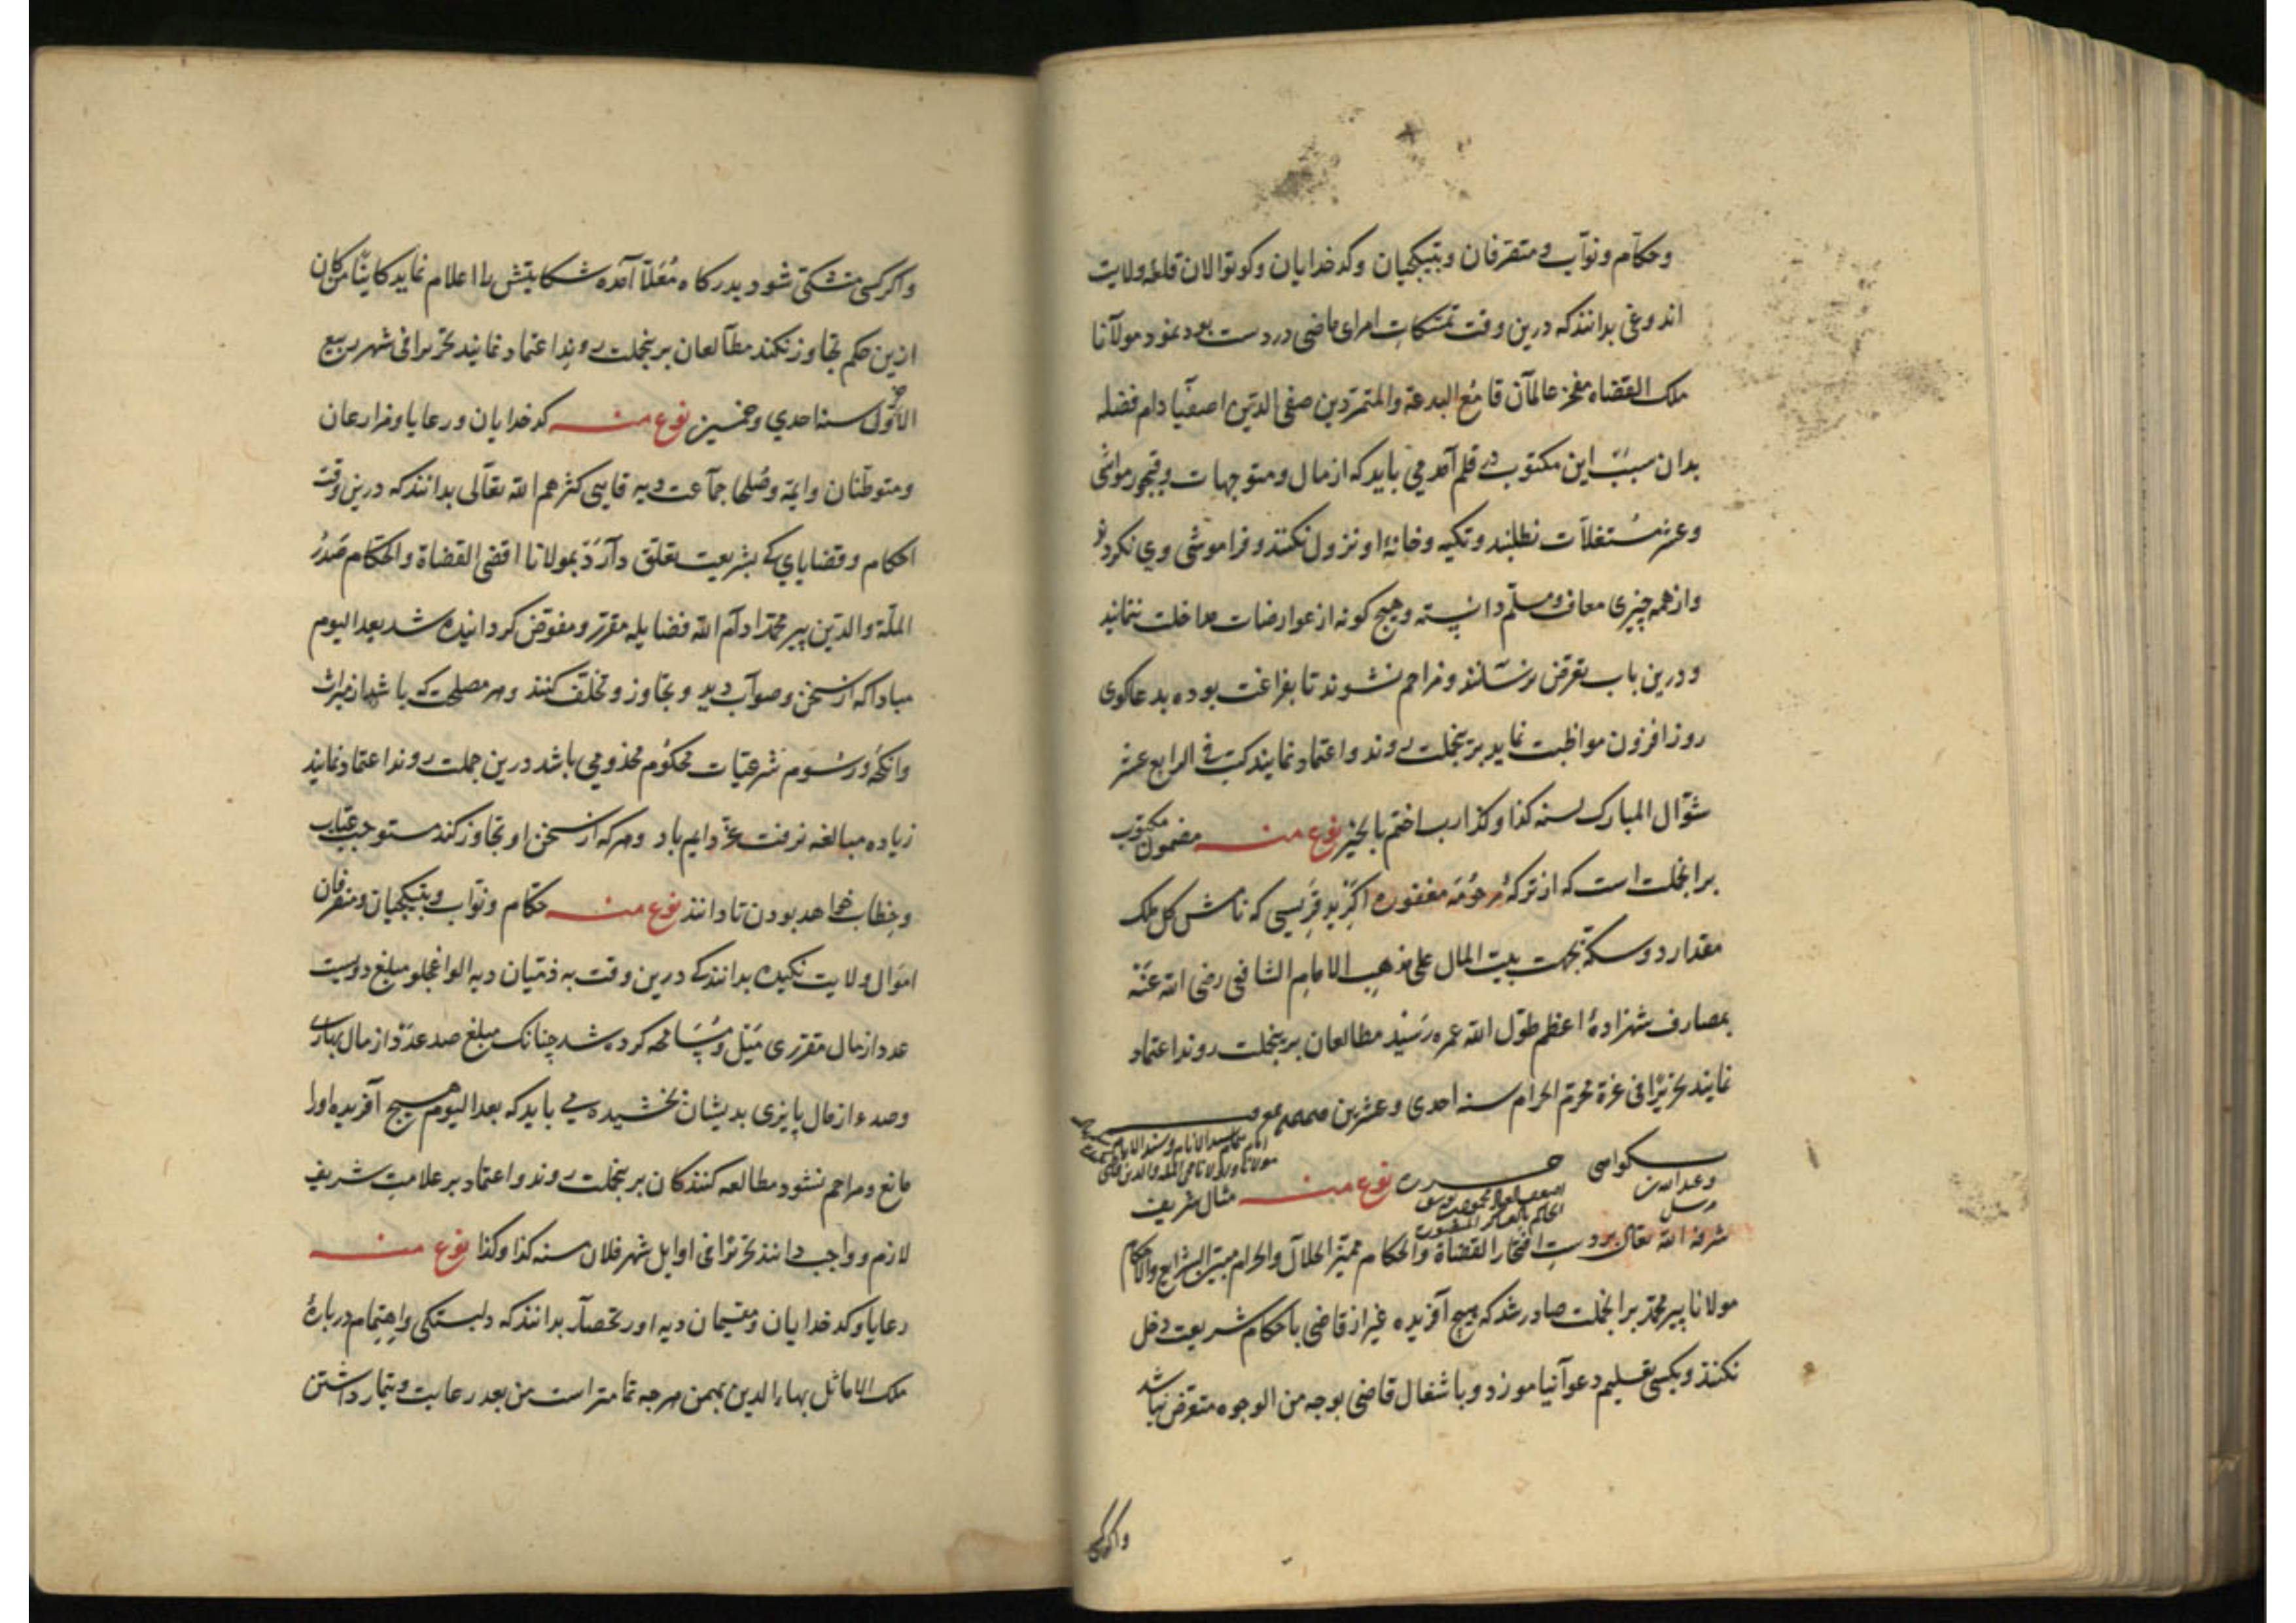 وحکام ونواب ومتصرفان وبتیکچیان وکدخدایان وکوتوالان قلعهٔ ولایت
بدانند که درین وقت تمسکات امرای ماضی در دست بود نمود مولانا
ملک القضاه مفخر عالمان قامع البدعة والمتمردین صفی الدین اصفیا دام فضله
بدان سبب این مکتوب در قلم آمد می باید که از مال ومتوجهات وقبجور مواشی
وعشر مستغلات نطلبند وتکیه وخانهٔ او نزول نکنند وفراموشی وی نکردند
واز همه چیزی معاف ومسلم دانسته وهیچ کونه از عوارضات مداخلت ننمایند
ودرین باب تعرض نرسانند ومزاحم نشوند تا بفراغت بوده بدعاکوی
روز افزون مواظبت نماید برینجملت روند واعتماد نمایند کتب فی الرابع عشر
شوال المبارک لسنه کذا وکذا رب اختم بالخیر نوع منه مضمون مکتوب
برانجملت است که از ترکهٔ مرحومه مغفوره که نامش کل ملک
مقدار دو سکة بجهت بیت المال علی مذهب الامام الشافعی رضی الله عنه
بمصارف شهزادهٔ اعظم طول الله عمره رسید مطالعان برینجملت روند اعتماد
نمایند تحریرا فی غرة محرم الحرام سنه احدی وعشرین
نوع منه مثال شریف
شرفه الله تعالی بر دست افتخار القضاة والحکام ممیز الحلال والحرام مبین الشرایع والاحکام
مولانا پیر محمد برانجملت صادر شد که هیچ آفریده غیر از قاضی باحکام شریعت دخل
نکنند وبکسی تعلیم دعوآنیا موزد وباشغال قاضی بوجه من الوجوه متعرض نباشد
واکرکسی
واکرکسی متشکی شود بدرکاه معلا آمده شکایتش را اعلام نماید کاینا من کان
ازین حکم تجاوز نکند مطالعان برینجملت روند اعتماد نمایند تحریرا فی شهر ربیع
الاول سنة احدی وخمسین نوع منه کدخدایان ورعایا ومزارعان
ومتوطنان وایمه وصلحا جماعت دیه قایی کثرهم الله تعالی بدانند که درین وقت
احکام وقضایای که بشریعت تعلق دارد بمولانا اقضی القضاة والحکام صدر
الملة والدین پیر محمد ادام الله فضایله مقرر ومفوض کردانیده شد بعد الیوم
مبادا که از سخن وصواب دید وتجاوز وتخلف کنند وهر مصلحت که باشد از میراث
وانکحه ورسوم شرعیات محکوم مخدومی باشد درین جملت روند اعتماد نمایند
زیاده مبالغه نرفت عز دایم باد وهرکه از سخن او تجاوز کند مستوجب عتاب
وخطاب خواهد بودن تا دانند نوع منه حکام ونواب وبتیکچیان ومتصرفان
اموال ولایت نکیده بدانند که درین وقت به ذمیان دیه الواغجلو مبلغ دویست
عدد از مال مقرری مسامحه کرده شد چنانک مبلغ صد عدد از مال بهاری
وصد از مال پاییزی بدیشان بخشیده می باید که بعد الیوم هیچ آفریده اورا
مانع ومزاحم نشود مطالعه کنندکان برینجملت روند واعتماد بر علامت شریف
لازم وواجب دانند تحریرا فی اوایل شهر فلان سنه کذا وکذا نوع منه
رعایا وکدخدایان ومقیمان دیه اورتحصار بدانند که دلبستکی واهتمام دربارهٔ
ملک الاماثل بهار الدین بهمن هرجه تمامتر است من بعد رعایت وتیمار داشتن